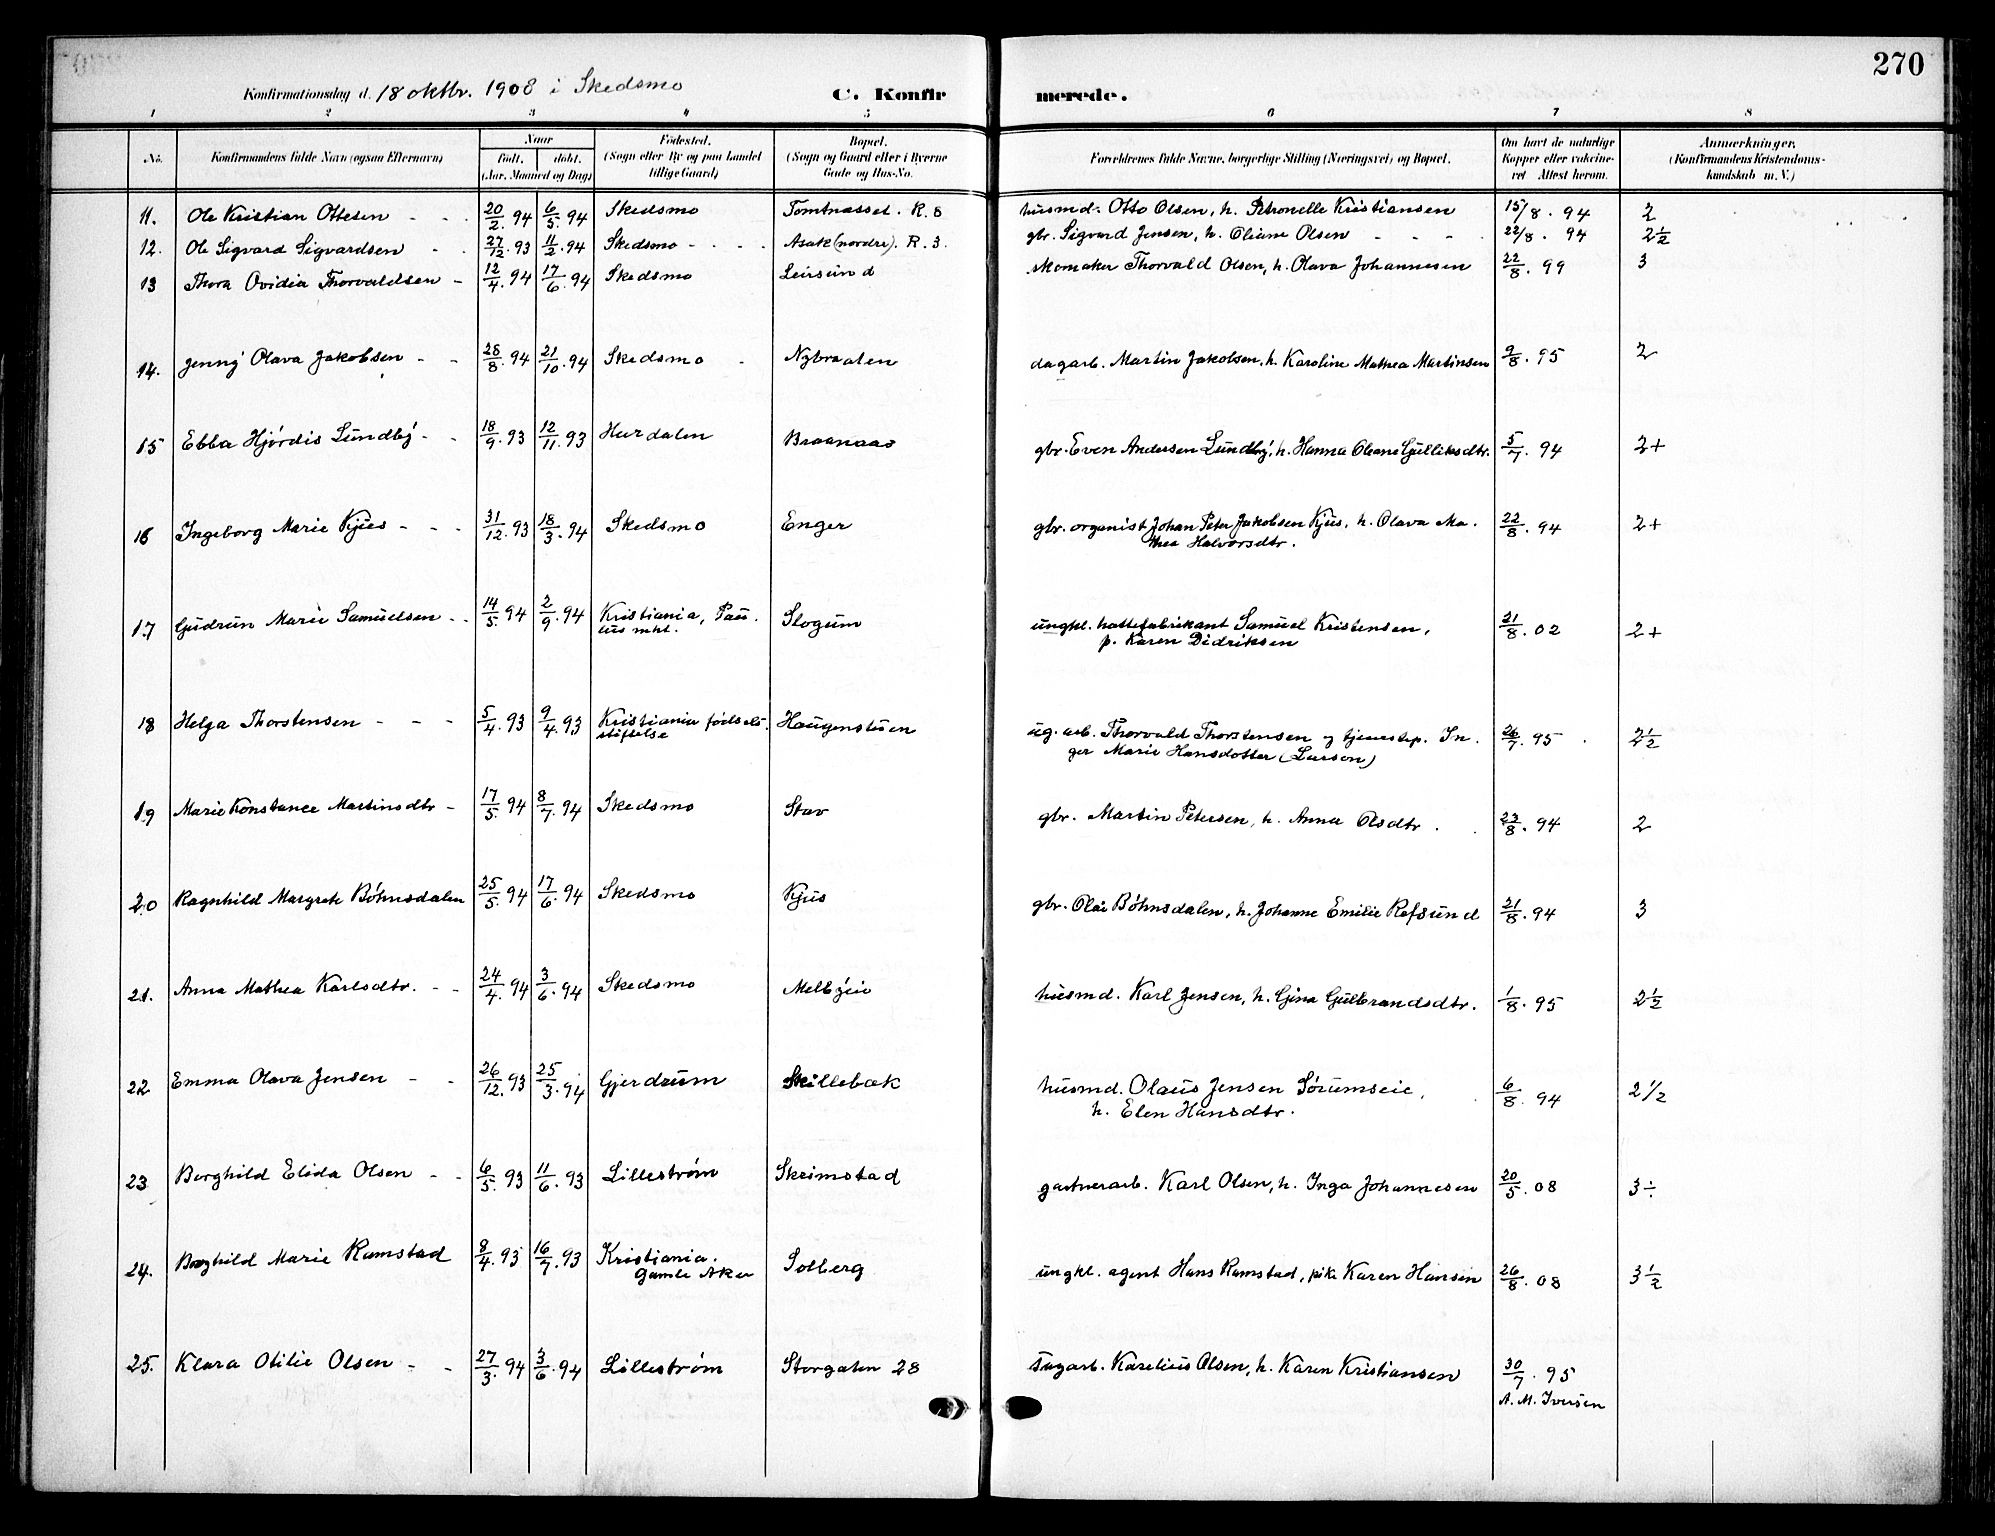 270
Konfirmationsdag d. 18 oktbr. 1908 i Skedsmo C. Konfirmerede.
1 2 3 4 5 6 7 8
No. Konfirmandens fulde Navn (ogsaa Efternavn) Naar født. døbt. (Aar, Maaned og Dag) Fødested. (Sogn eller By og paa Landet tillige Gaard) Bopæl. (Sogn og Gaard eller i Byerne Gade og Hus-No. Forældrenes fulde Navne, borgerlige Stilling (Næringsvei) og Bopæl. Om havt de naturlige Kopper eller vaccineret. Attest herom. Anmærkninger. (Konfirmandens Kristendomskundskab m. V.)
11. Ole Kristian Ottesen - - - 20/2. 94 6/5. 94 Skedsmo Tomtnasset. R. 8 husmd. Otto Olsen, h. Petronelle Kristiansen 15/8. 94 2
12. Ole Sigvard Sigvardsen - - 27/12. 93 11/2. 94 Skedsmo - - - - Asak (nordre). R. 3. gbr. Sigvard Jensen, h. Oliane Olsen - - - - 22/8. 94 2 1/2
13 Thora Ovidia Thorvaldsen - 12/4. 94 17/6. 94 Skedsmo Leirsund skomaker Thorvald Olsen, h. Olava Johannesen 22/8. 99 3
14. Jenny Olava Jakobsen - - 28/8. 94 21/10. 94 Skedsmo - Nybraaten dagarb. Martin Jakobsen, h. Karoline Mathea Martinsen 9/8. 95 2
15 Ebba Hjørdis Lundby - - 18/9. 93 12/11. 93 Hurdalen Braanaas gbr. Even Andersen Lundby, h. Hanna Oleane Gulliksdtr. 5/7. 94 2+
16 Ingeborg Marie Kjus - - - 31/12. 93 18/3. 94 Skedsmo Enger gbr. organist Johan Peter Jakobsen Kjus, h. Olava Ma-
thea Halvorsdtr. 22/8. 94 2+
17 Gudrun Marie Samuelsen - - 14/5. 94 2/9. 94 Kristiania, Pau-
lus mht. Slogum ungkl. hattefabrikant Samuel Kristensen,
p. Karen Didriksen 21/8. 02 2+
18 Helga Thorstensen - - - 5/4. 93 9/4. 93 Kristiania fødsels-
stiftelse Haugenstuen ug. arb. Thorvald Thorstensen og tjenestep. In-
ger Marie Hansdotter (Larsen) 26/7. 95. 2 1/2
19 Marie Konstance Martinsdtr - 17/5. 94 8/7. 94 Skedsmo Stav gbr. Martin Petersen, h. Anna Olsdtr. 23/8. 94 2
20 Ragnhild Margrete Bøhnsdalen 25/5. 94 17/6. 94 Skedsmo Kjus gbr. Olai Bøhnsdalen, h. Johanne Emilie Refsund 21/8. 94 3
21. Anna Mathea Karlsdtr. - - 24/4. 94 3/6. 94 Skedsmo Melbyeie husmd. Karl Jensen, h. Gina Gulbrandsdtr. 1/8. 95 2 1/2
22 Emma Olava Jensen - - 26/12. 93 25/3. 94 Gjerdrum Skillebæk husmd. Olaus Jensen Sørumseie,
h. Elen Hansdtr. 6/8. 94 2 1/2
23 Borghild Elida Olsen - - 6/5. 93 11/6. 93 Lillestrøm Skrimstad gartnerarb. Karl Olsen, h. Inga Johannesen 20/5. 08 3÷
24. Borghild Marie Ramstad 9/4. 93 16/7. 93 Kristiania.
Gamle Aker Solberg ungkl. agent Hans Ramstad, pike Karen Hansen 26/8. 08 3 1/2
25. Klara Otilie Olsen - - 27/3. 94 3/6. 94 Lillestrøm Storgaten 28 sagarb. Karelius Olsen, h. Karen Kristiansen 30/7. 95
A. M. Iversen